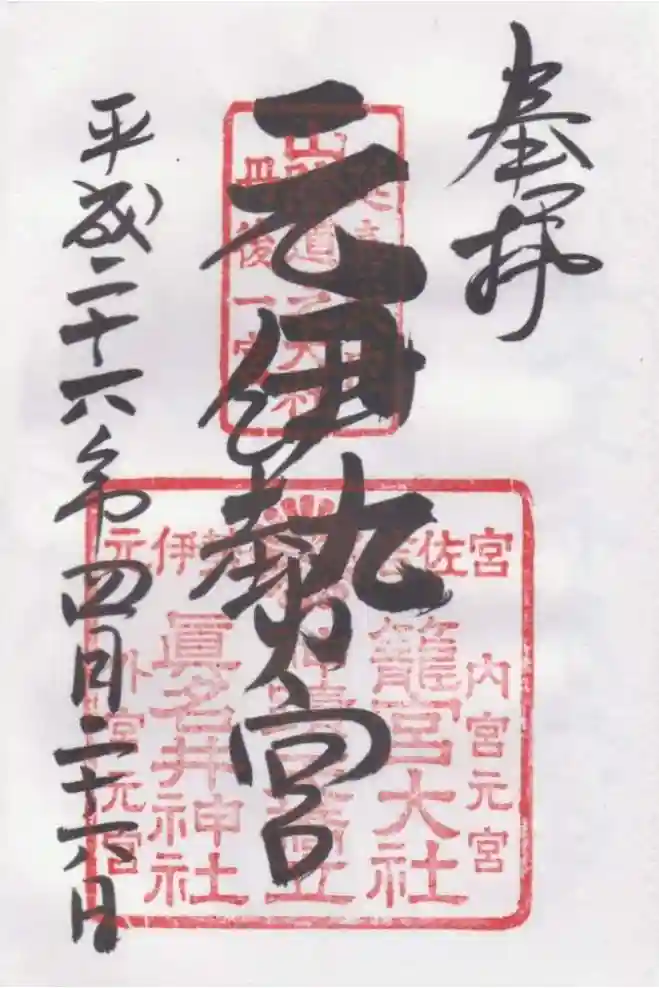 奉拝
元伊勢宮
平成二十六年四月二十六日
山陰道一之大社
丹後一宮
元伊勢 吉佐宮
内宮元宮
籠宮大社
眞名井神社
外宮元宮